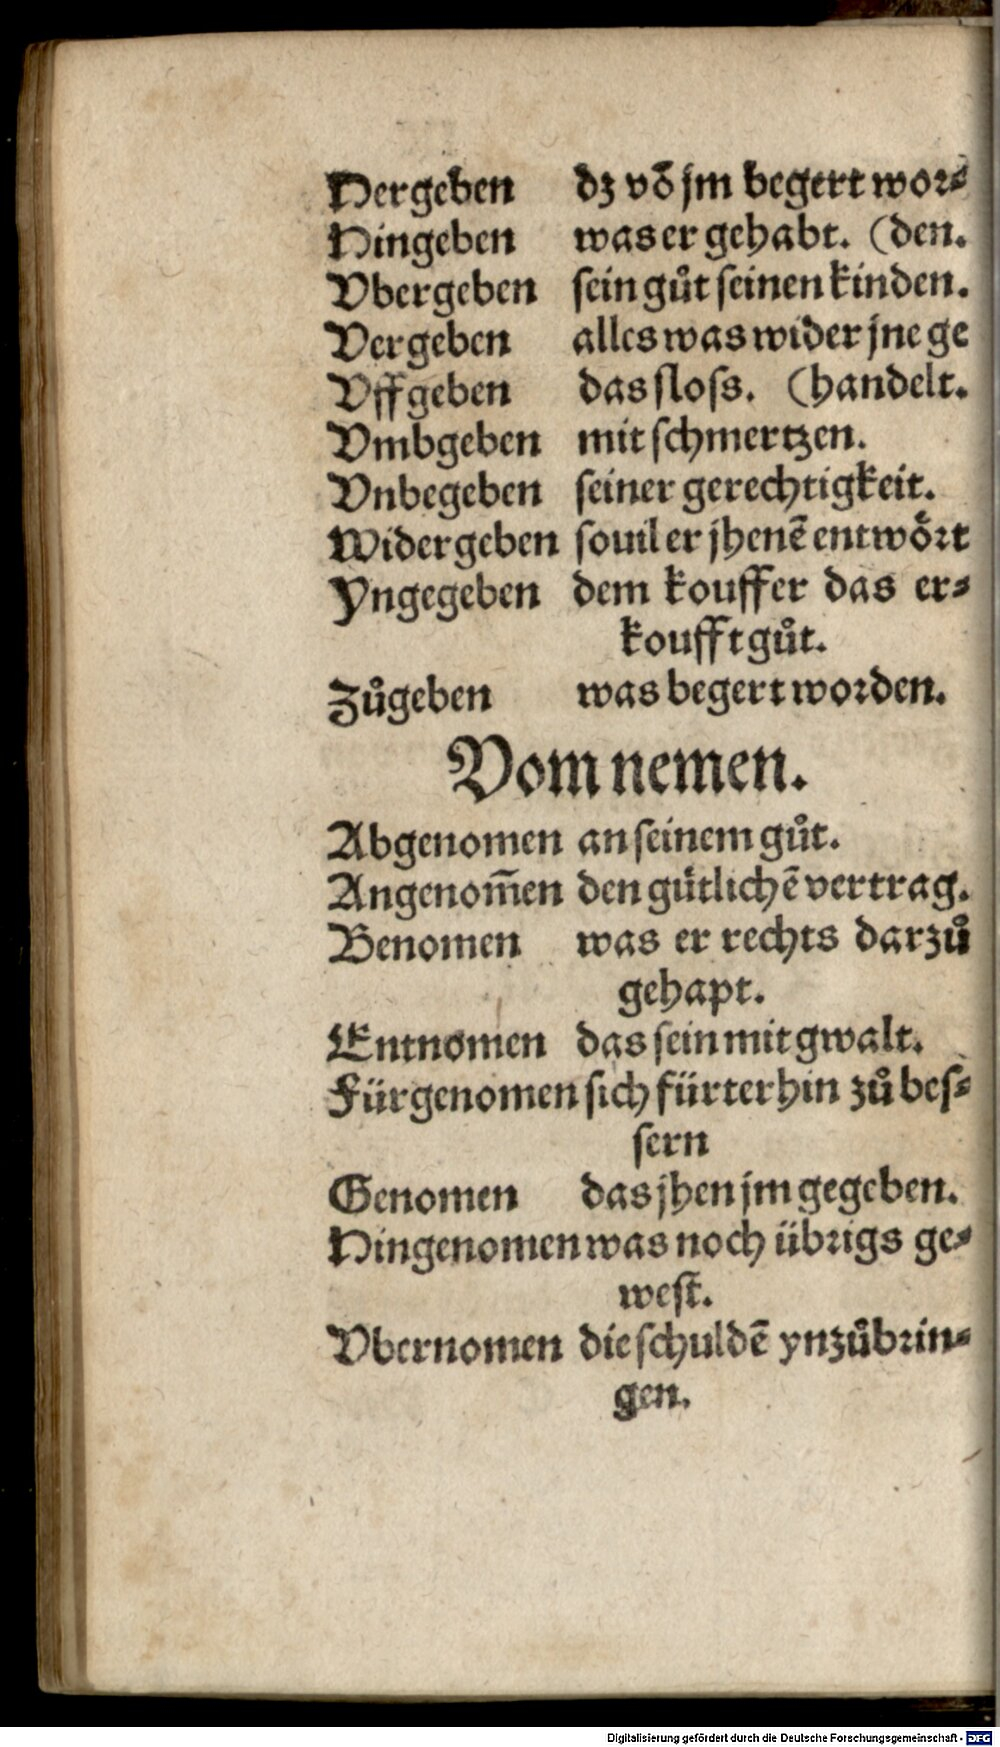 Hergeben dz võ jm begert wor⸗
Hingeben was er gehabt. (den.
Vbergeben sein gůt seinen kinden.
Vergeben alles was wider jne ge
Vffgeben das sloss. (handelt.
Vmbgeben mit schmertzen.
Vnbegeben seiner gerechtigkeit.
Widergeben souil er jhenẽ entwoͤrt
Yngegeben dem kouffer das er⸗
koufft gůt.
Zůgeben was begert worden.
Vom nemen.
Abgenomen an seinem gůt.
Angenom̄en den guͤtlichẽ vertrag.
Benomen was er rechts darzů
gehapt.
Entnomen das sein mit gwalt.
Fürgenomen sich fürterhin zů bes⸗
sern
Genomen das jhen jm gegeben.
Hingenomen was noch übrigs ge⸗
west.
Vbernomen die schuldẽ ynzůbrin⸗
gen.
Digitalisierung gefördert durch die Deutsche Forschungsgemeinschaft - DFG